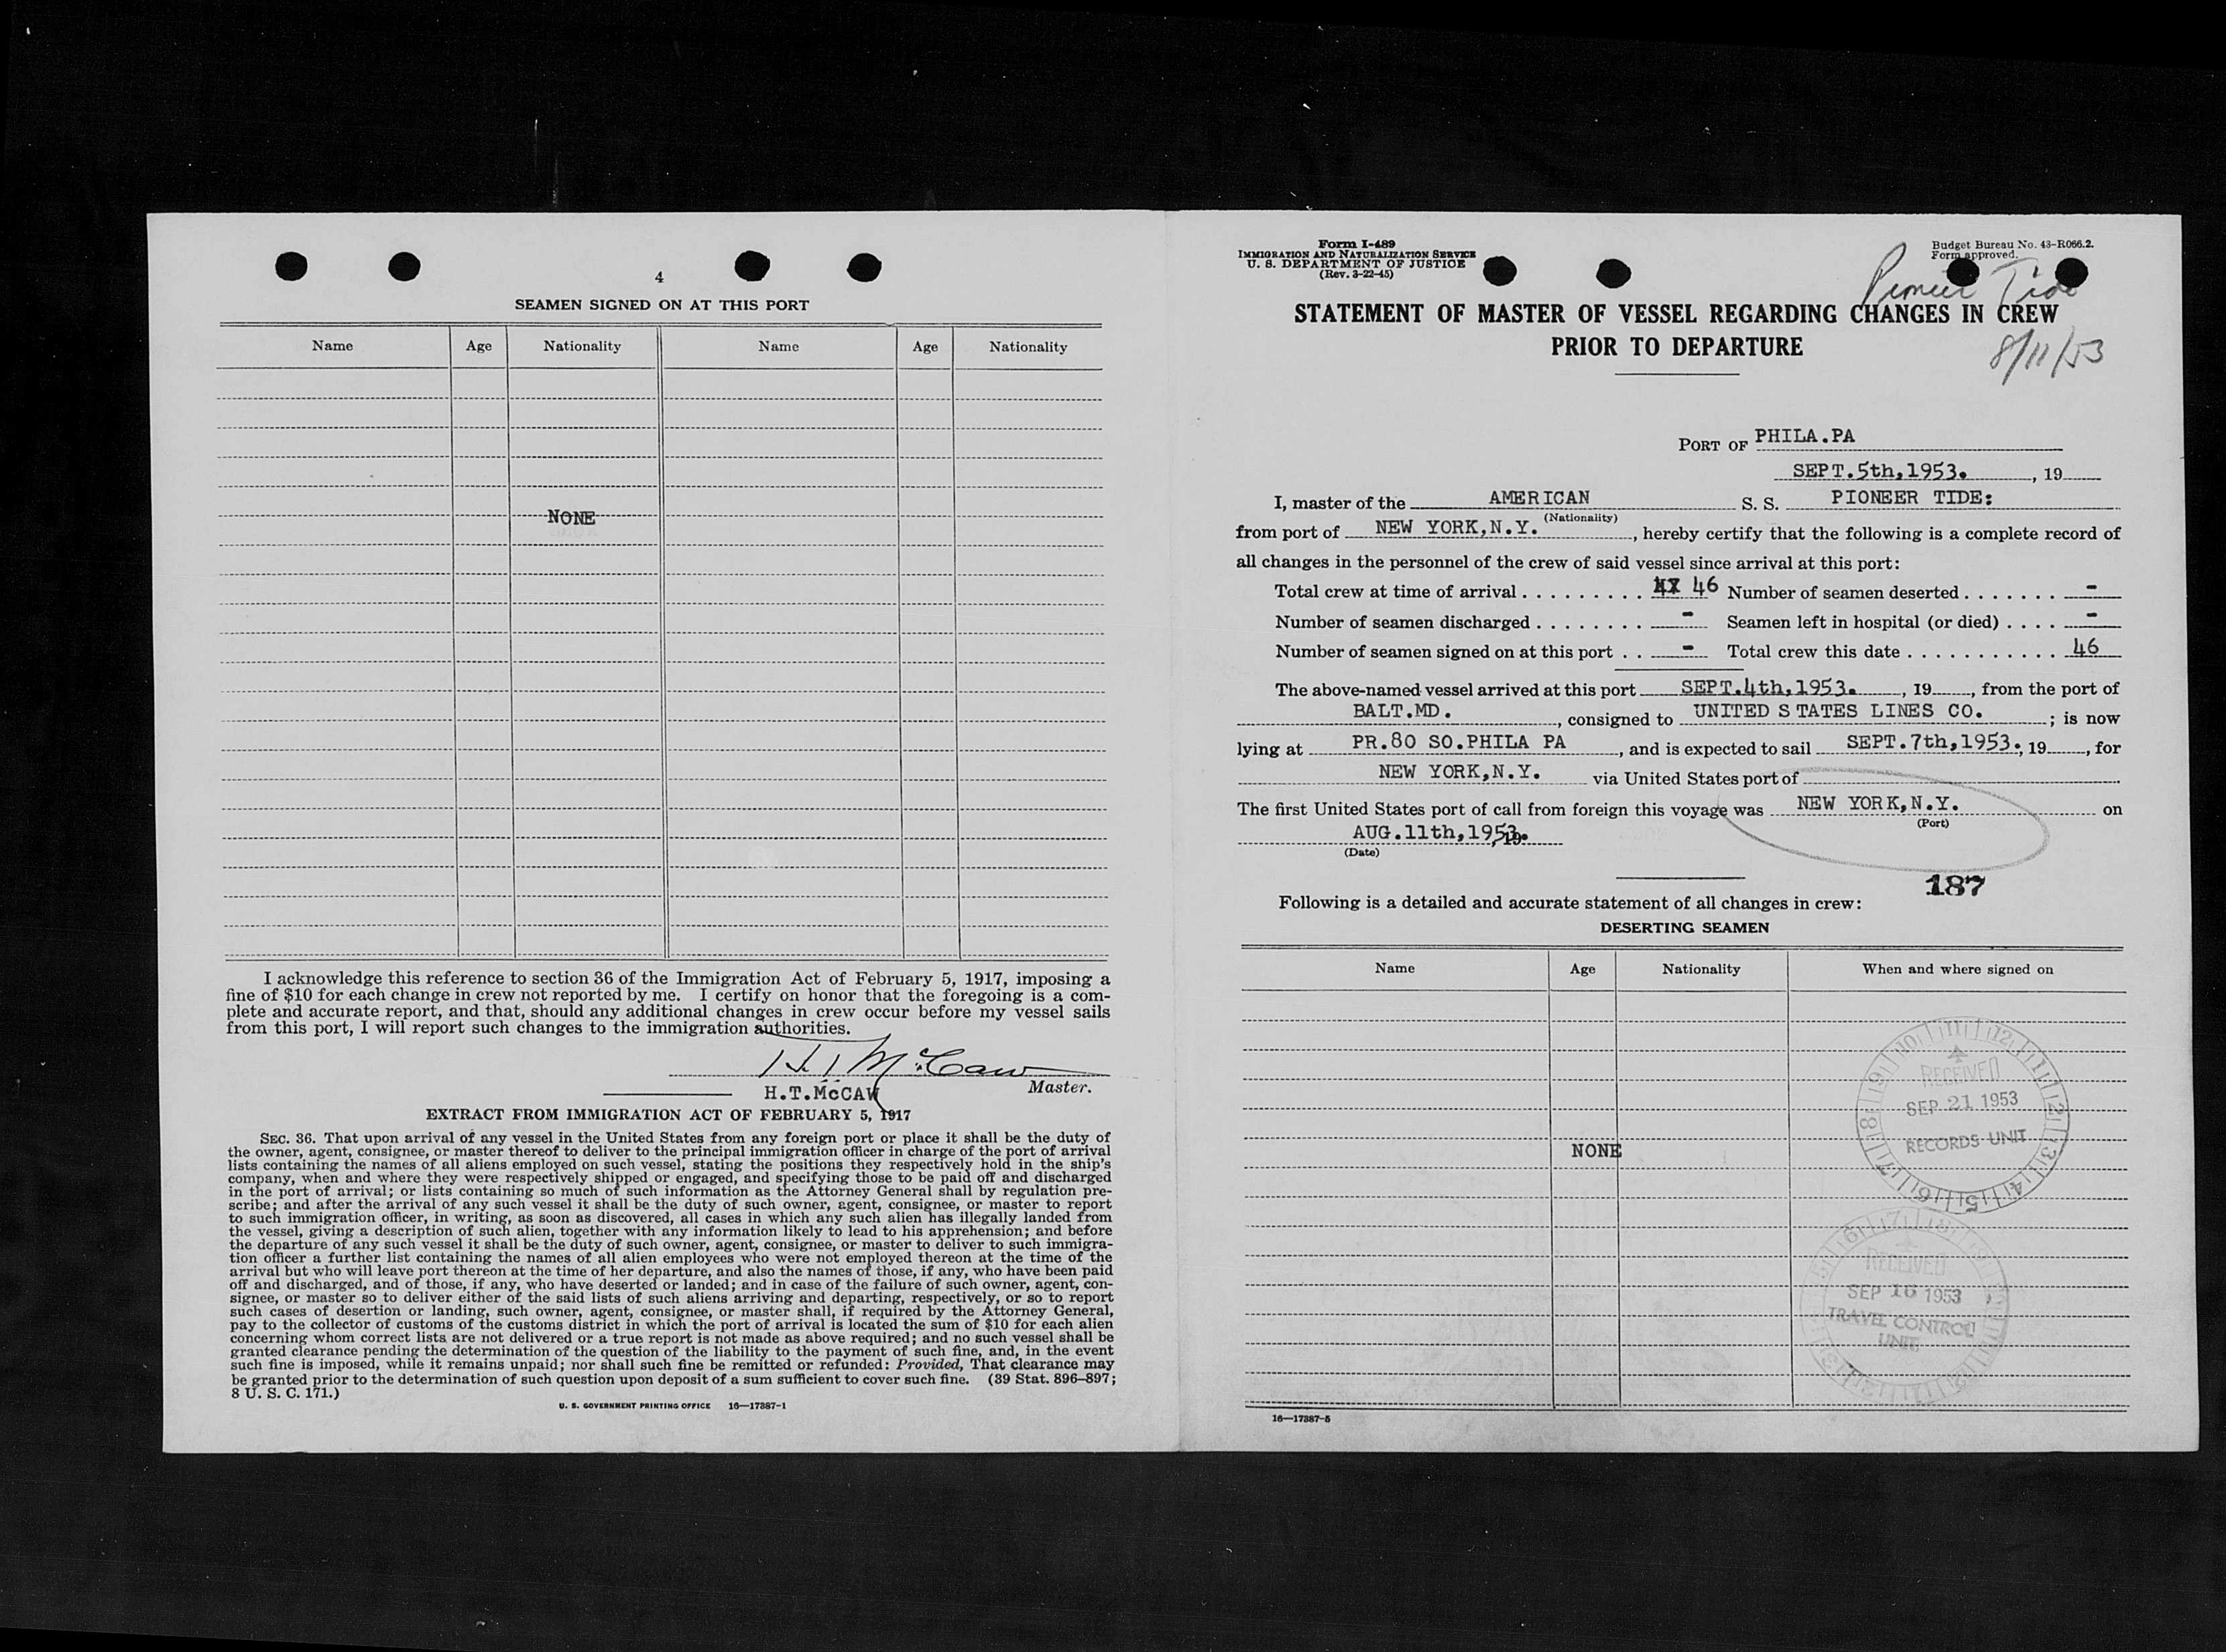 4
SEAMEN SIGNED ON AT THIS PORT
Name Age Nationality Name Age Nationality
NONE
I acknowledge this reference to section 36 of the Immigration Act of February 5, 1917, imposing a
fine of $10 for each change in crew not reported by me. I certify on honor that the foregoing is a com-
plete and accurate report, and that, should any additional changes in crew occur before my vessel sails
from this port, I will report such changes to the immigration authorities.
H.T. McCaw
H.T.McCAW Master.
EXTRACT FROM IMMIGRATION ACT OF FEBRUARY 5, 1917
SEC. 36. That upon arrival of any vessel in the United States from any foreign port or place it shall be the duty of
the owner, agent, consignee, or master thereof to deliver to the principal immigration officer in charge of the port of arrival
lists containing the names of all aliens employed on such vessel, stating the positions they respectively hold in the ship's
company, when and where they were respectively shipped or engaged, and specifying those to be paid off and discharged
in the port of arrival; or lists containing so much of such information as the Attorney General shall by regulation pre-
scribe; and after the arrival of any such vessel it shall be the duty of such owner, agent, consignee, or master to report
to such immigration officer, in writing, as soon as discovered, all cases in which any such alien has illegally landed from
the vessel, giving a description of such alien, together with any information likely to lead to his apprehension; and before
the departure of any such vessel it shall be the duty of such owner, agent, consignee, or master to deliver to such immigra-
tion officer a further list containing the names of all alien employees who were not employed thereon at the time of the
arrival but who will leave port thereon at the time of her departure, and also the names of those, if any, who have been paid
off and discharged, and of those, if any, who have deserted or landed; and in case of the failure of such owner, agent, con-
signee, or master so to deliver either of the said lists of such aliens arriving and departing, respectively, or so to report
such cases of desertion or landing, such owner, agent, consignee, or master shall, if required by the Attorney General,
pay to the collector of customs of the customs district in which the port of arrival is located the sum of $10 for each alien
concerning whom correct lists are not delivered or a true report is not made as above required; and no such vessel shall be
granted clearance pending the determination of the question of the liability to the payment of such fine, and, in the event
such fine is imposed, while it remains unpaid; nor shall such fine be remitted or refunded: Provided, That clearance may
be granted prior to the determination of such question upon deposit of a sum sufficient to cover such fine. (39 Stat. 896–897;
8 U. S. C. 171.)
U. S. GOVERNMENT PRINTING OFFICE 16—17387-1
Form I-489
IMMIGRATION AND NATURALIZATION SERVICE
U. S. DEPARTMENT OF JUSTICE
(Rev. 3-22-45)
Budget Bureau No. 43-R066.2.
Form approved.
Pioneer Tide
STATEMENT OF MASTER OF VESSEL REGARDING CHANGES IN CREW
PRIOR TO DEPARTURE
8/11/53
PORT OF PHILA.PA
SEPT.5th,1953. , 19
I, master of the AMERICAN S. S. PIONEER TIDE:
(Nationality)
from port of NEW YORK,N.Y. , hereby certify that the following is a complete record of
all changes in the personnel of the crew of said vessel since arrival at this port:
Total crew at time of arrival . . . . . . . . . 46 Number of seamen deserted . . . . . . . -
Number of seamen discharged . . . . . . . . - Seamen left in hospital (or died) . . . . -
Number of seamen signed on at this port . . - Total crew this date . . . . . . . . . . . 46
The above-named vessel arrived at this port SEPT.4th,1953. , 19 , from the port of
BALT.MD. , consigned to UNITED STATES LINES CO. ; is now
lying at PR.80 SO.PHILA PA , and is expected to sail SEPT.7th,1953. , 19 , for
NEW YORK,N.Y. via United States port of
The first United States port of call from foreign this voyage was NEW YORK,N.Y. on
(Port)
AUG.11th,1953. , 19
(Date)
187
Following is a detailed and accurate statement of all changes in crew:
DESERTING SEAMEN
Name Age Nationality When and where signed on
RECEIVED
SEP 21 1953
RECORDS UNIT
NONE
RECEIVED
SEP 16 1953
TRAVEL CONTROL
UNIT
16—17387-5